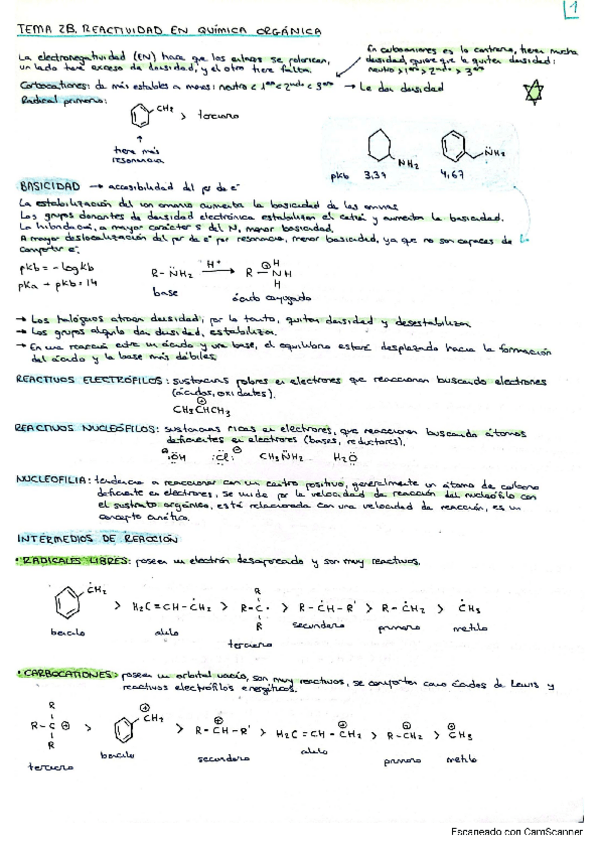 1
TEMA 2B. REACTIVIDAD EN QUÍMICA ORGÁNICA
La electronegatividad (EN) hace que los enlaces se polaricen,
un lado tiene exceso de densidad, y el otro tiene falta.
En carbaniones es lo contrario, tienen mucha
densidad, quiere que la quiten densidad:
metilo > 1ario > 2ndario > 3ario
Carbocationes: de más estables a menos: metilo < 1ario < 2ndario < 3ario → Le dan densidad
Radical primario:
CH2 > terciario
↑
tiene más
resonancia
NH2
N̈H2
pkb 3,39 4,67
BASICIDAD → accesibilidad del par de e-
La estabilización del ion amonio aumenta la basicidad de las aminas.
Los grupos donantes de densidad electrónica estabilizan el catión y aumenta la basicidad.
La hibridación, a mayor carácter s del N, menor basicidad.
A mayor deslocalización del par de e- por resonancia, menor basicidad, ya que no son capaces de
compartir e-.
pkb = - log kb
pKa + pKb = 14
R - N̈H2 H+ → R - ⊕NH
H
H
base
ácido conjugado
→ Los halógenos atraen densidad, por lo tanto, quitan densidad y desestabilizan.
→ Los grupos alquilo dan densidad, estabilizan.
→ En una reacción entre un ácido y una base, el equilibrio estará desplazado hacia la formación
del ácido y la base más débiles.
REACTIVOS ELECTRÓFILOS: sustancias pobres en electrones que reaccionan buscando electrones
(ácidos, oxidantes).
CH3C⊕HCH3
REACTIVOS NUCLEÓFILOS: sustancias ricas en electrones, que reaccionan buscando átomos
deficientes en electrones (bases, reductores).
⊖:ÖH :C̈l:⊖ CH3N̈H2 H2Ö
NUCLEOFILIA: tendencia a reaccionar con un centro positivo, generalmente un átomo de carbono
deficiente en electrones, se mide por la velocidad de reacción del nucleófilo con
el sustrato orgánico, está relacionada con una velocidad de reacción, es un
concepto cinético.
INTERMEDIOS DE REACCIÓN
• RADICALES LIBRES: poseen un electrón desapareado y son muy reactivos.
R
ĊH2 > H2C=CH-ĊH2 > R-C· > R-ĊH-R' > R-ĊH2 > ĊH3
R
bencilo alilo terciario secundario primario metilo
• CARBOCATIONES: poseen un orbital vacío, son muy reactivos, se comportan como ácidos de Lewis y
reactivos electrófilos energéticos.
R
R-C⊕ > CH2⊕ > R-C⊕H-R' > H2C=CH-C⊕H2 > R-C⊕H2 > C⊕H3
R
terciario bencilo secundario alilo primario metilo
Escaneado con CamScanner